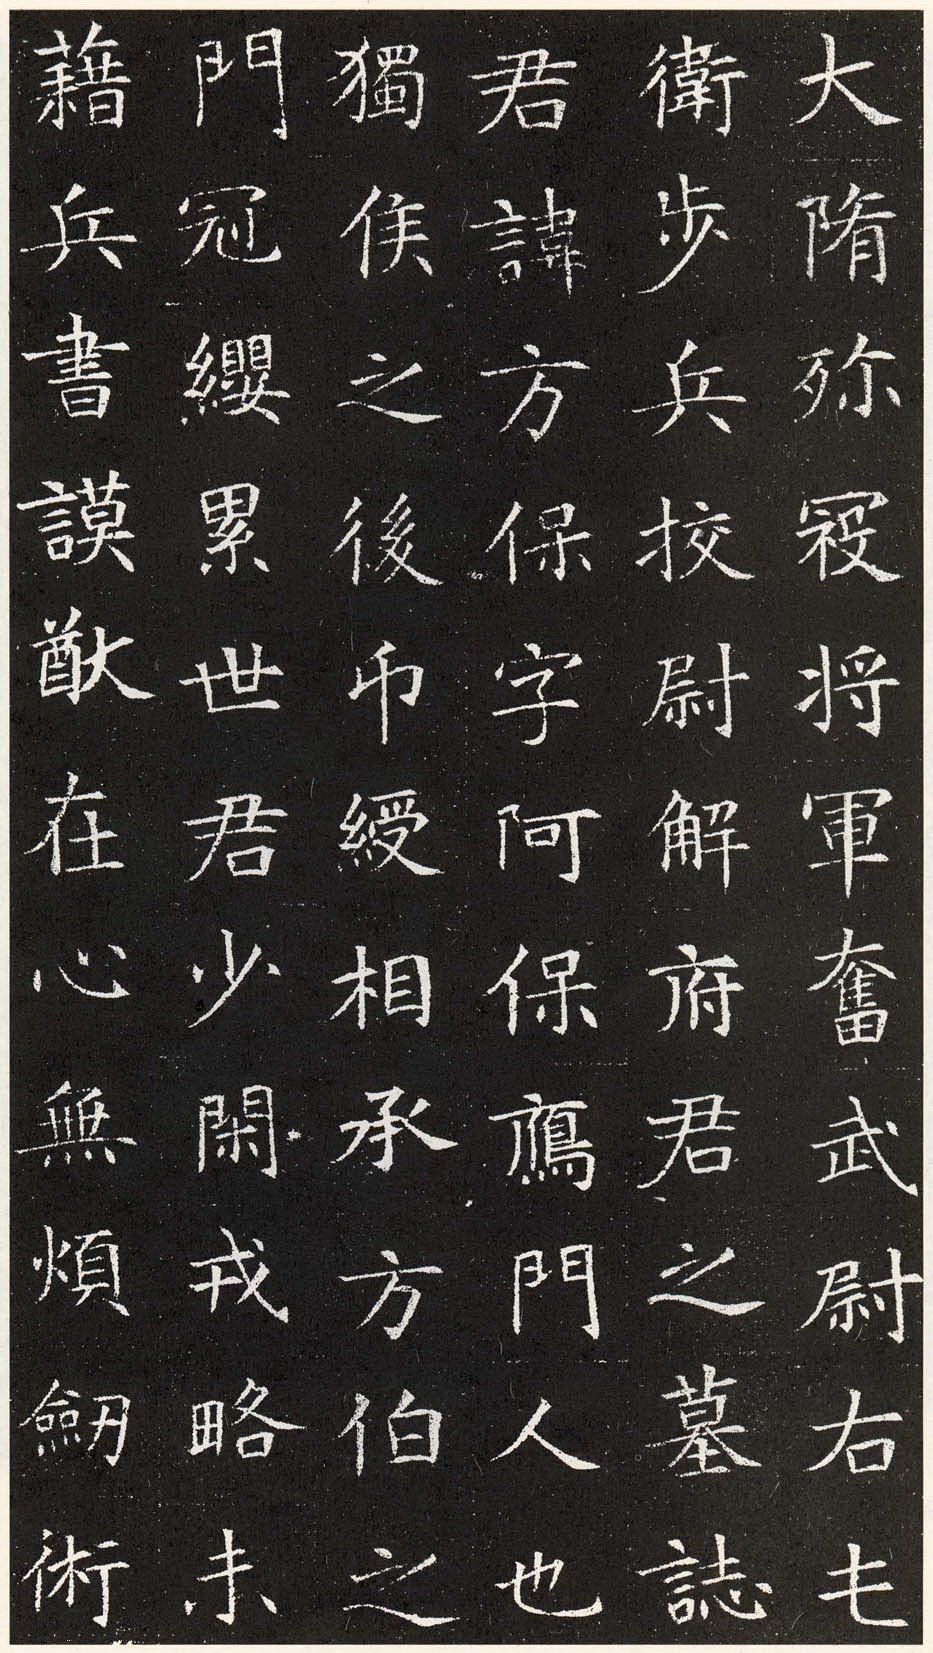 大隋殄寇将軍奮武尉右
衛步兵挍尉解府君之墓誌
君諱方保字阿保鴈門人也
獨侯之後印綬相承方伯之
門冠纓累世君少閑戎略未
藉兵書謨猷在心無煩劒術